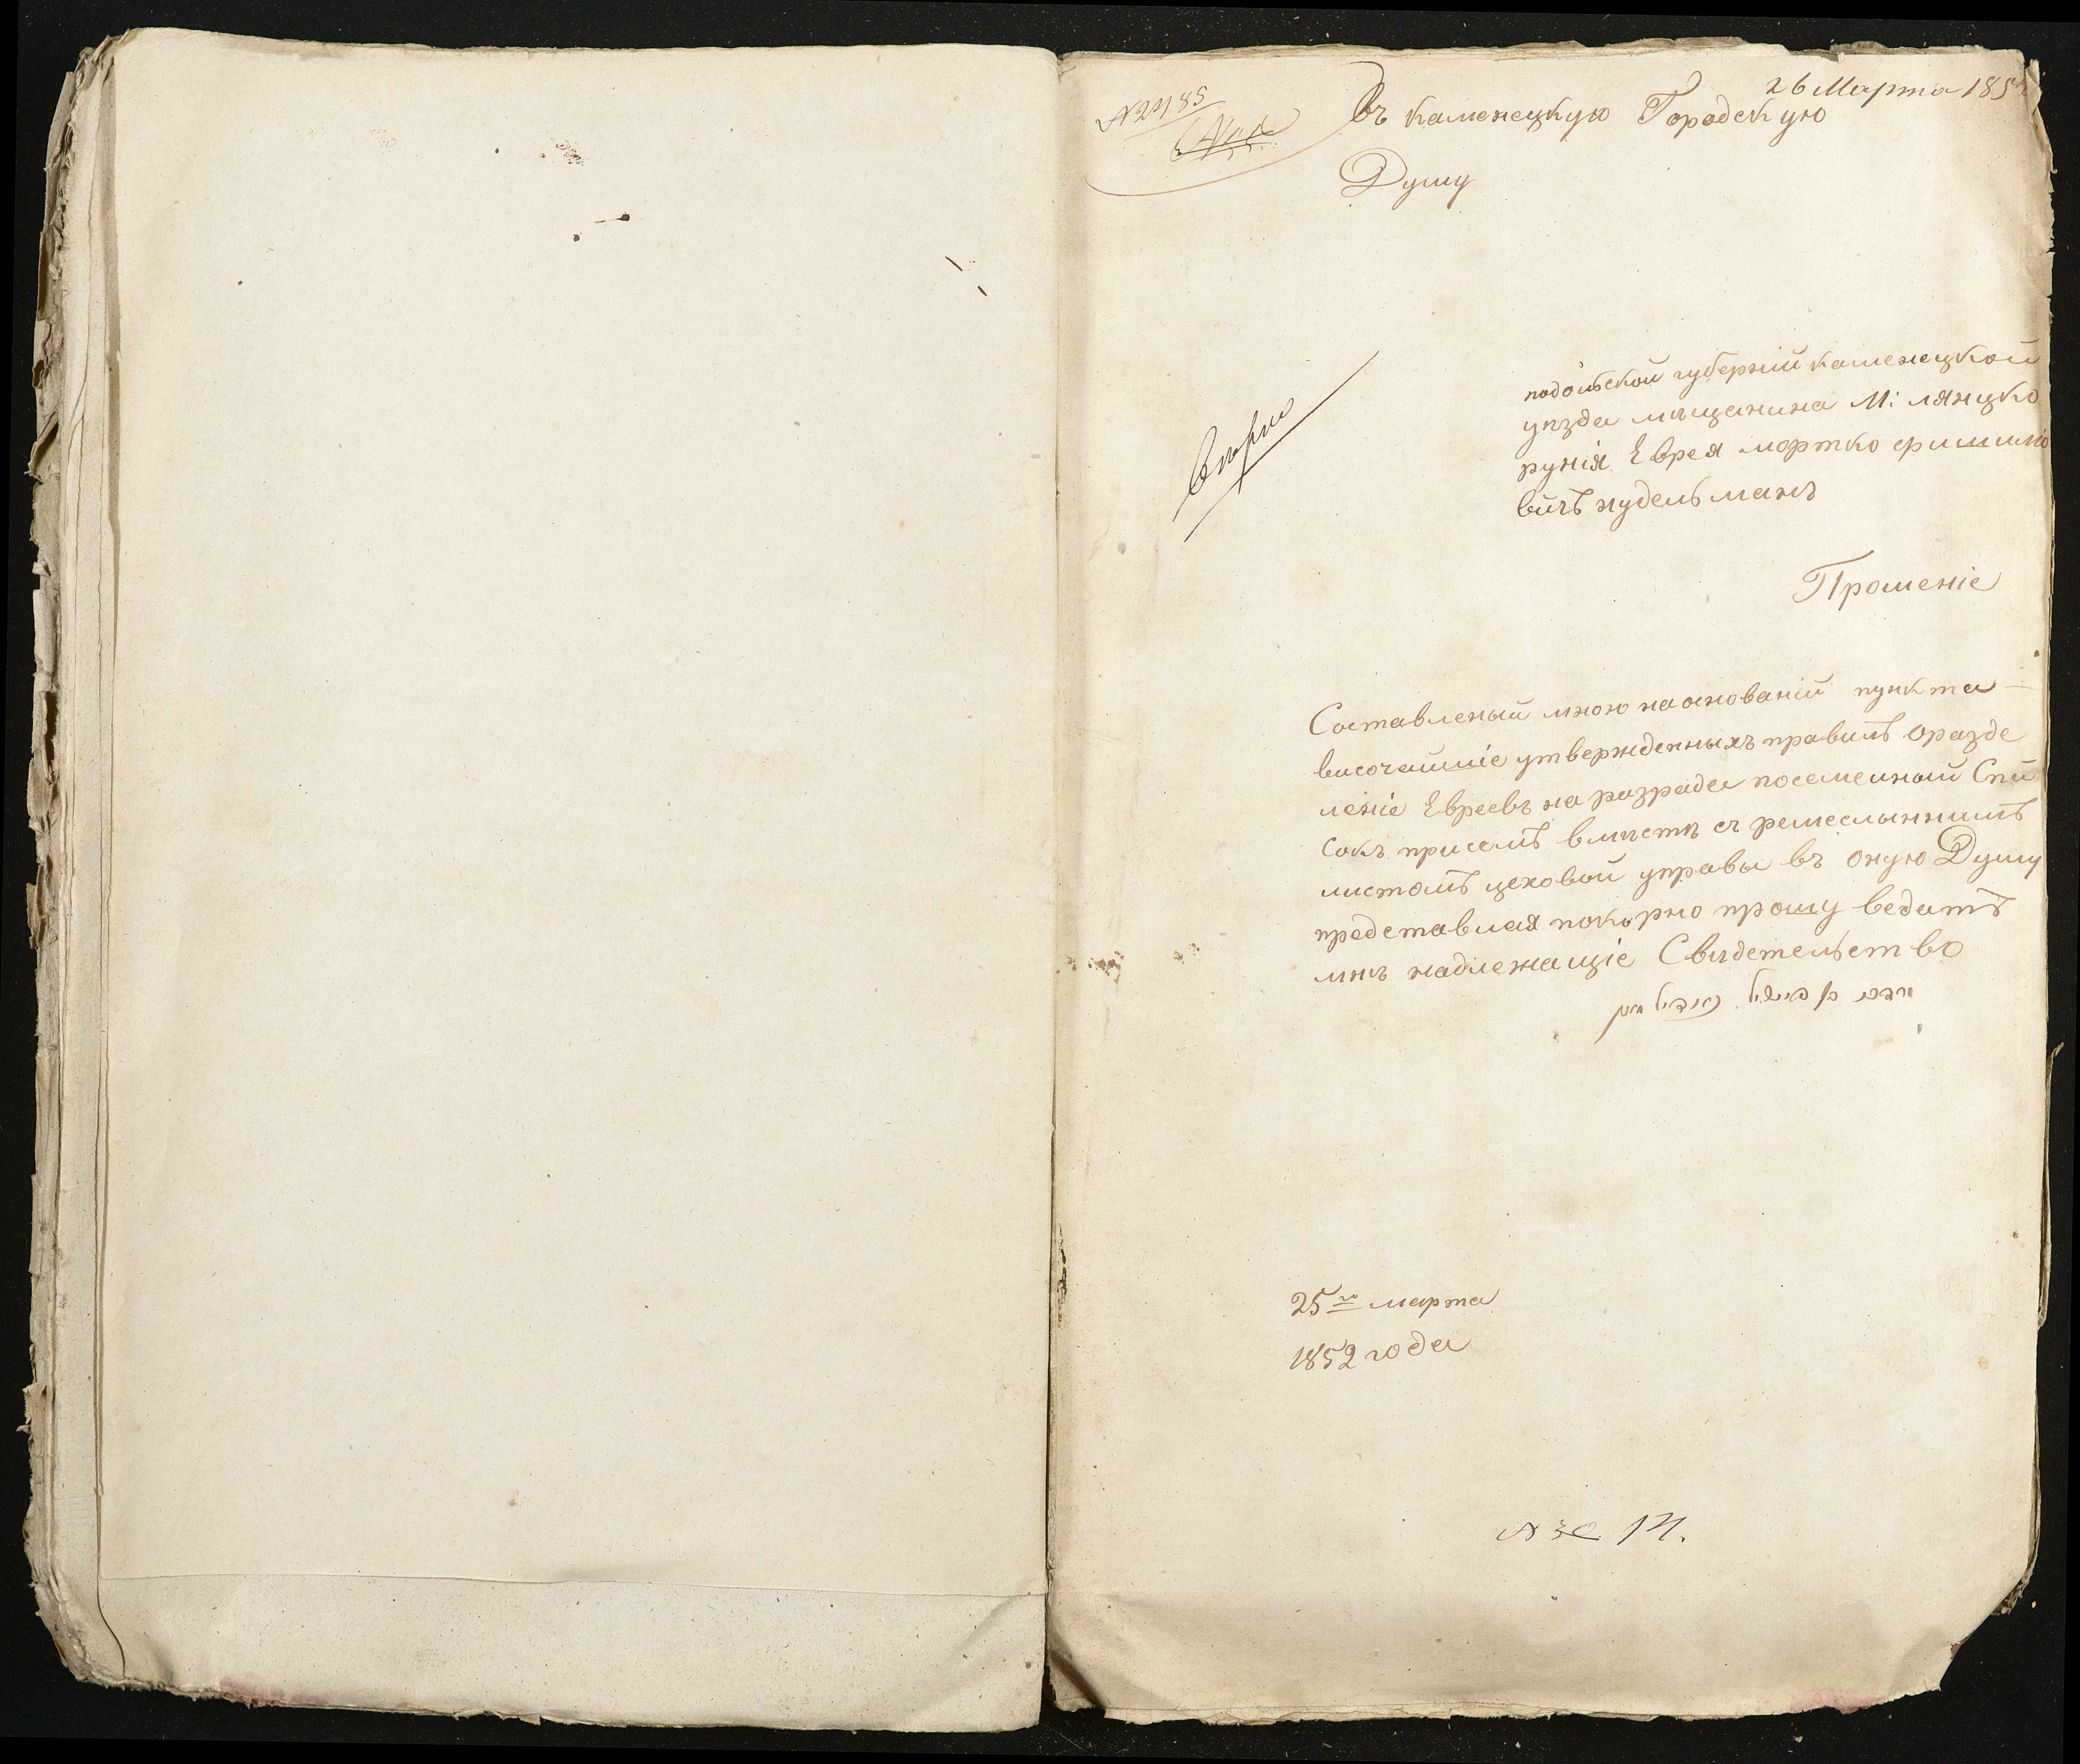 26 Марта 185
№ 2485
Въ каменецкую Городскую
Думу
подольской губерніи каменецкой
уѣзда мѣщанина М: лянцко
рунія Еврея мортко
вичъ нудельманъ
Прошеніе
Составленый мною на основаніи пункта
височайшіе утвержденныхъ правилъ оразде
леніе Евреевъ на разрада посемейный Спи
сокъ присемъ вмѣстѣ съ ремеслыннимъ
листомъ цеховой управы въ оную Думу
представлая покорно прошу ведатъ
мнѣ надлежащіе Свѣдетельство
25го марта
1852 года
№ 30 14.